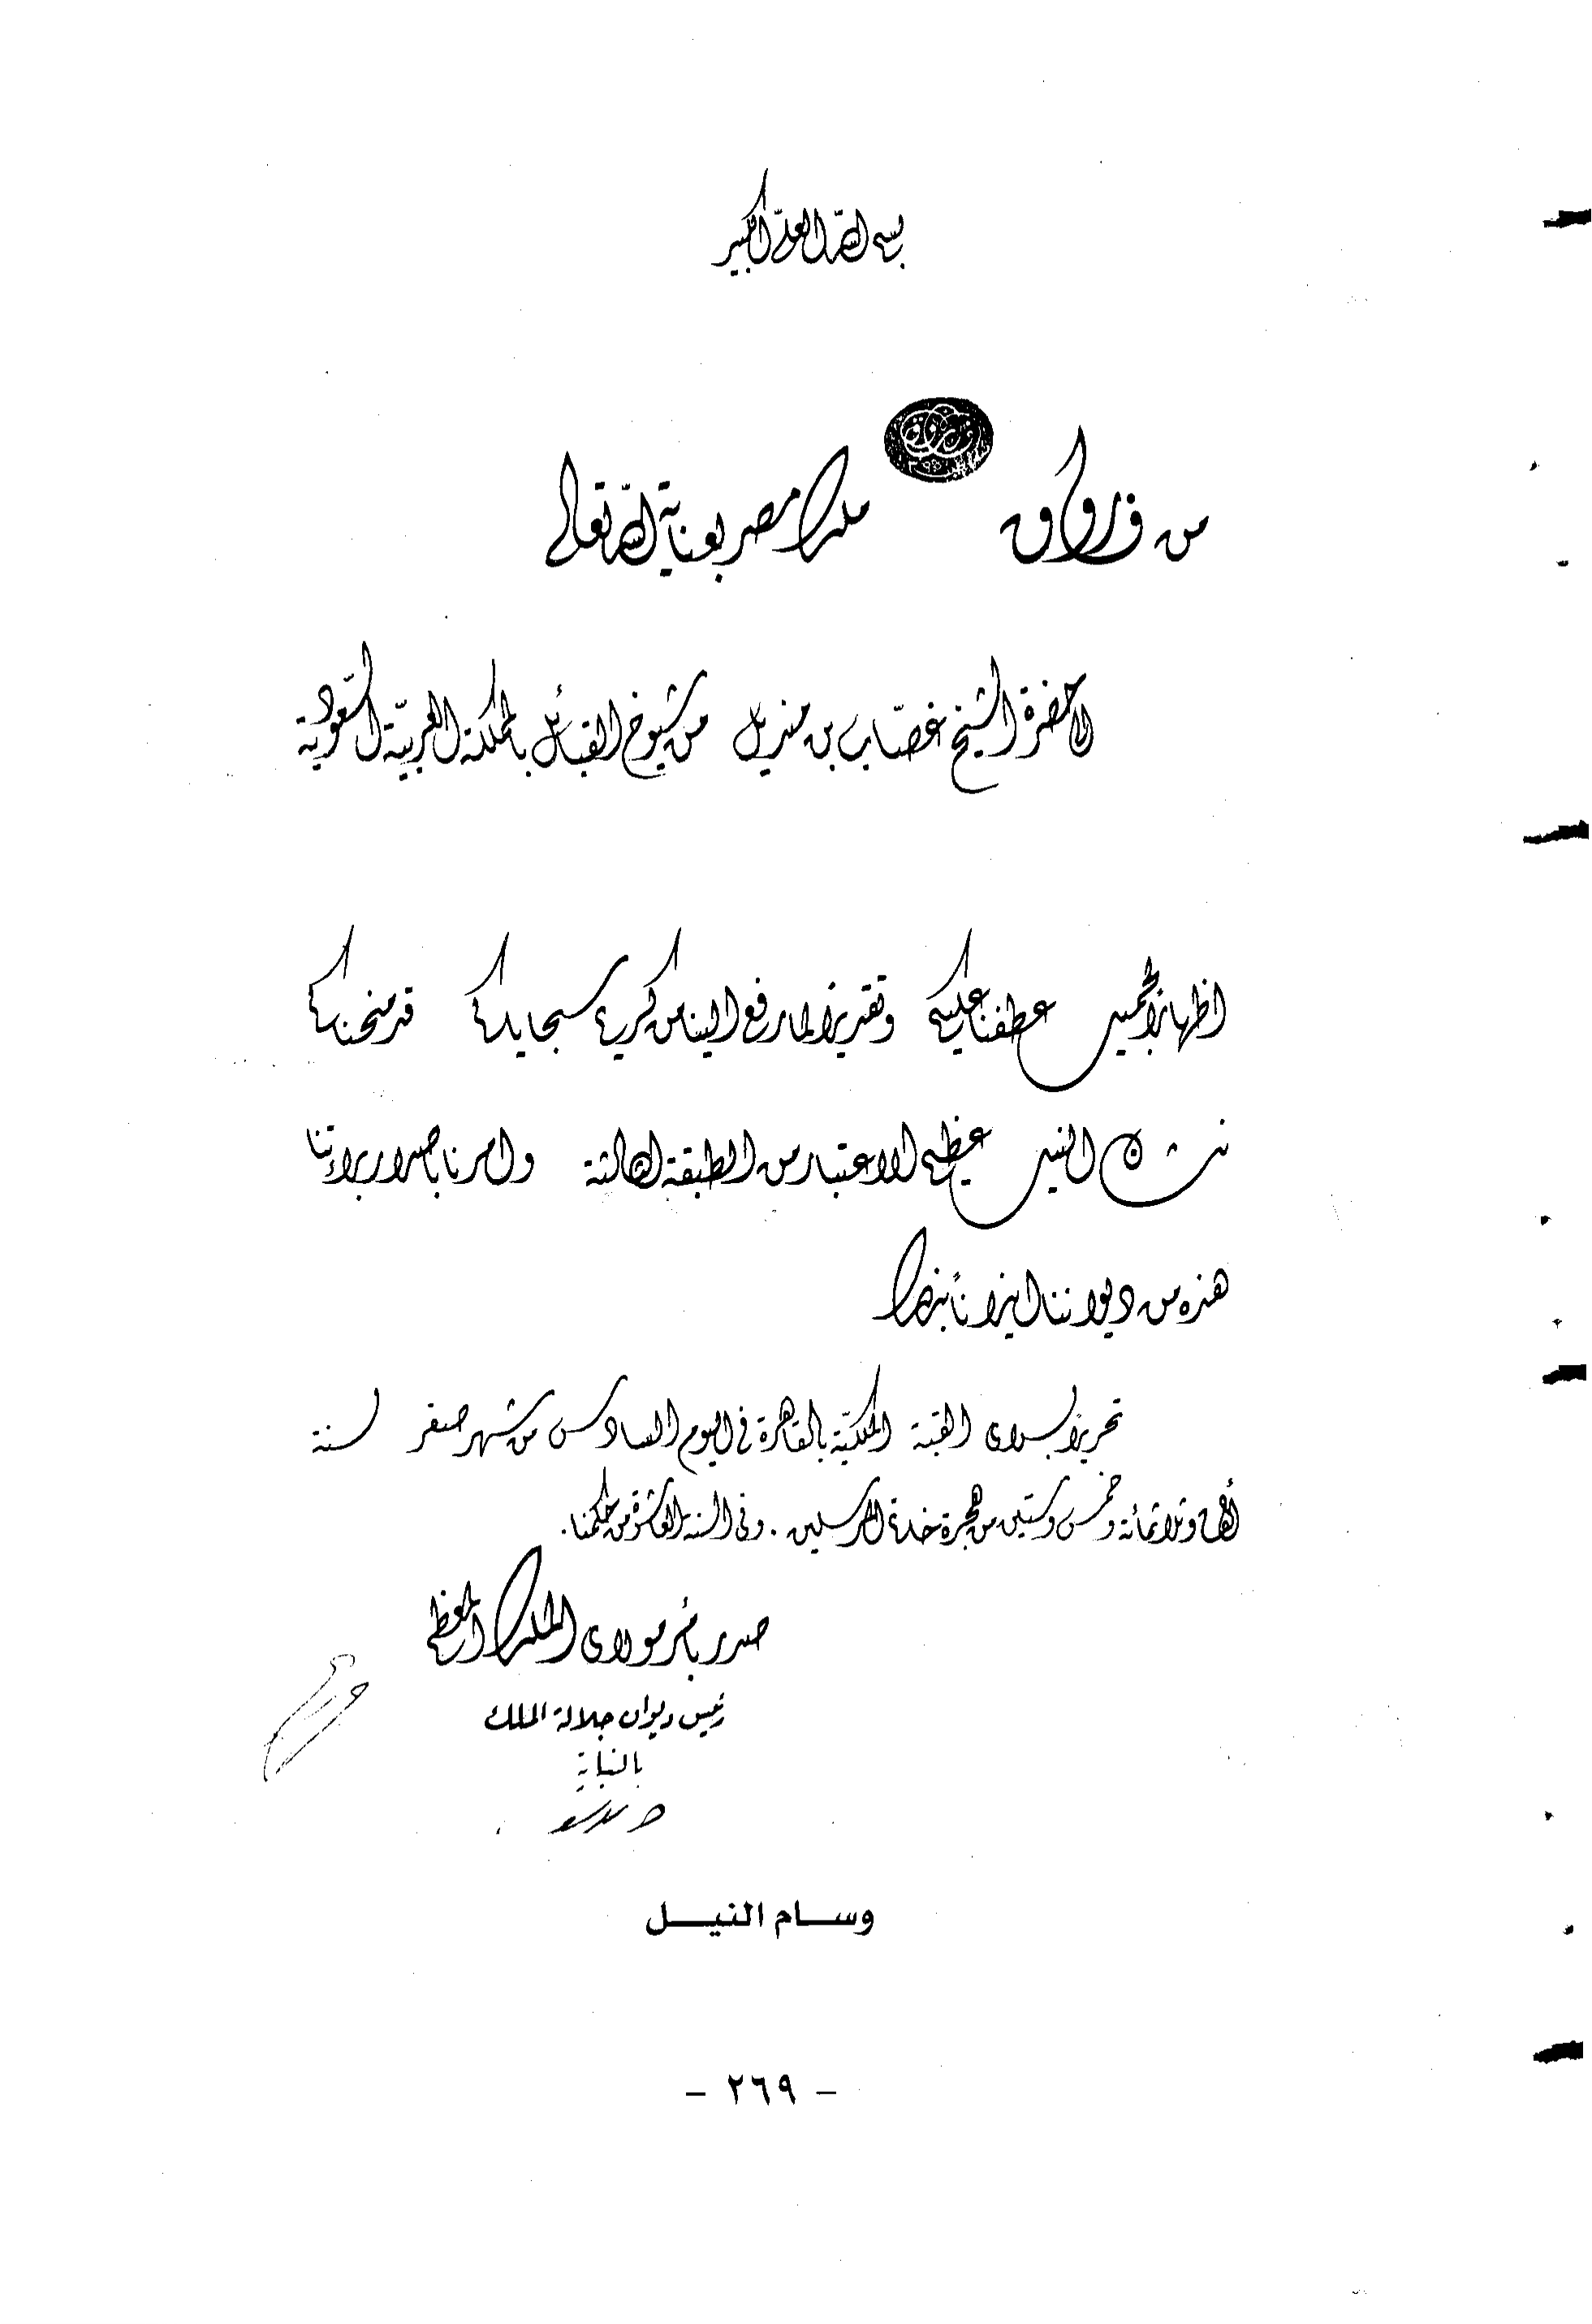 بسم الله العلي الكبير
فاروق
من فاروق ملك مصر بعناية الله تعالى
إلى حضرة الشيخ غصّاب بن منديل من شيوخ القبائل بالمملكة العربيّة السّعودية
اظهارًا لجميل عطفنا عليكم وتقديرًا لما رفع الينا من كريم سجاياكم قد منحناكم
نشان النيل عظيم الاعتبار من الطبقة الثالثة وامرنا باصدار براءتنا
هذه من ديواننا ايذانًا بذلك
تحريرًا بسراى القبة الملكيّة بالقاهرة في اليوم السادس من شهر صفر لسنة
ألف وثلاثمائة وخمس وستين من هجرة خاتم المرسلين . وفى السنة العاشرة من حكمنا .
صدر بأمر مولاى الملك المعظم
رئيس ديوان جلالة الملك
بالنيابة
وسام النيل
- ٢٦٩ -